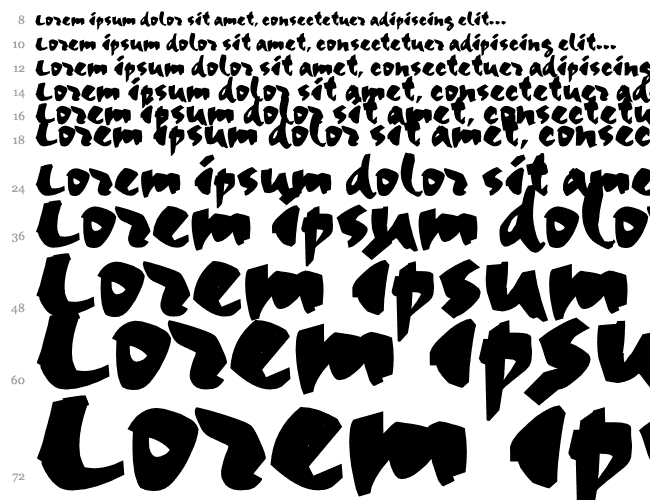 8 Lorem ipsum dolor sit amet, consectetuer adipiscing elit...
10 Lorem ipsum dolor sit amet, consectetuer adipiscing elit...
12 Lorem ipsum dolor sit amet, consectetuer adipiscing
14 Lorem ipsum dolor sit amet, consectetuer ad
16 Lorem ipsum dolor sit amet, consectetu
18 Lorem ipsum dolor sit amet, consec
24 Lorem ipsum dolor sit ame
36 Lorem ipsum dolo
48 Lorem ipsum
60 Lorem ipsu
72 Lorem ip